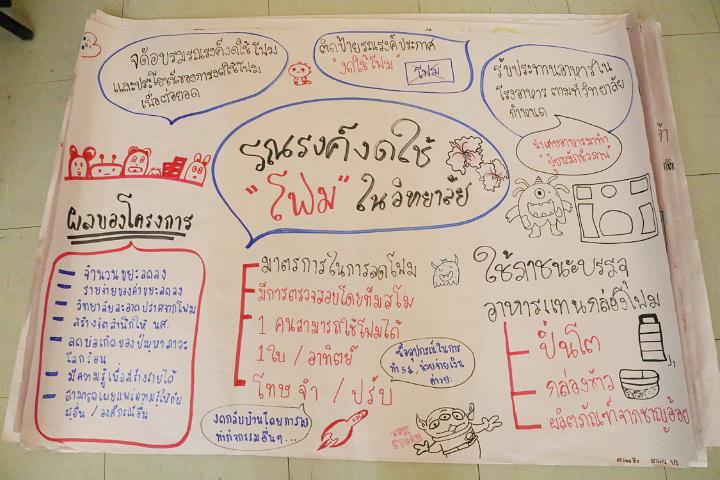 จัดอบรมรณรงค์งดใช้โฟม
และประโยชน์ของการงดใช้โฟม
เนื้อต่อยอด
ติดป้ายรณรงค์ประกาศ
"งดใช้โฟม"
โฟม
รับประทานอาหารใน
โรงอาหาร ตามที่วิทยาลัย
กำหนด
นำเศษอาหารมาทำ
"ปุ๋ยหมักชีวภาพ"
รณรงค์งดใช้
"โฟม" ในวิทยาลัย
ผลของโครงการ
จำนวนขยะลดลง
รายจ่ายของค่าขยะลดลง
วิทยาลัยสะอาดปราศจากโฟม
สร้างจิตสำนึกให้ นศ.
ลดข้อเกิดของปัญหาภาวะ
โลกร้อน
มีความรู้เพื่อสร้างรายได้
สามารถเผยแพร่ความรู้ไปยัง
ผู้อื่น / องค์กรอื่น
มาตรการในการลดโฟม
มีการตรวจสอบโดยทีมสโม
1 คนสามารถใช้โฟมได้
1 ใบ / อาทิตย์
โทษ จำ / ปรับ
ซื้ออุปกรณ์ในการ
ทำ 5 ส, ช่วยจ่ายเงิน
ค่าขยะ
งดกลับบ้านโดยการ
ทำกิจกรรมอื่นๆ...
ใช้ภาชนะบรรจุ
อาหารแทนกล่องโฟม
ปิ่นโต
กล่องข้าว
ผลิตภัณฑ์จากชานอ้อย